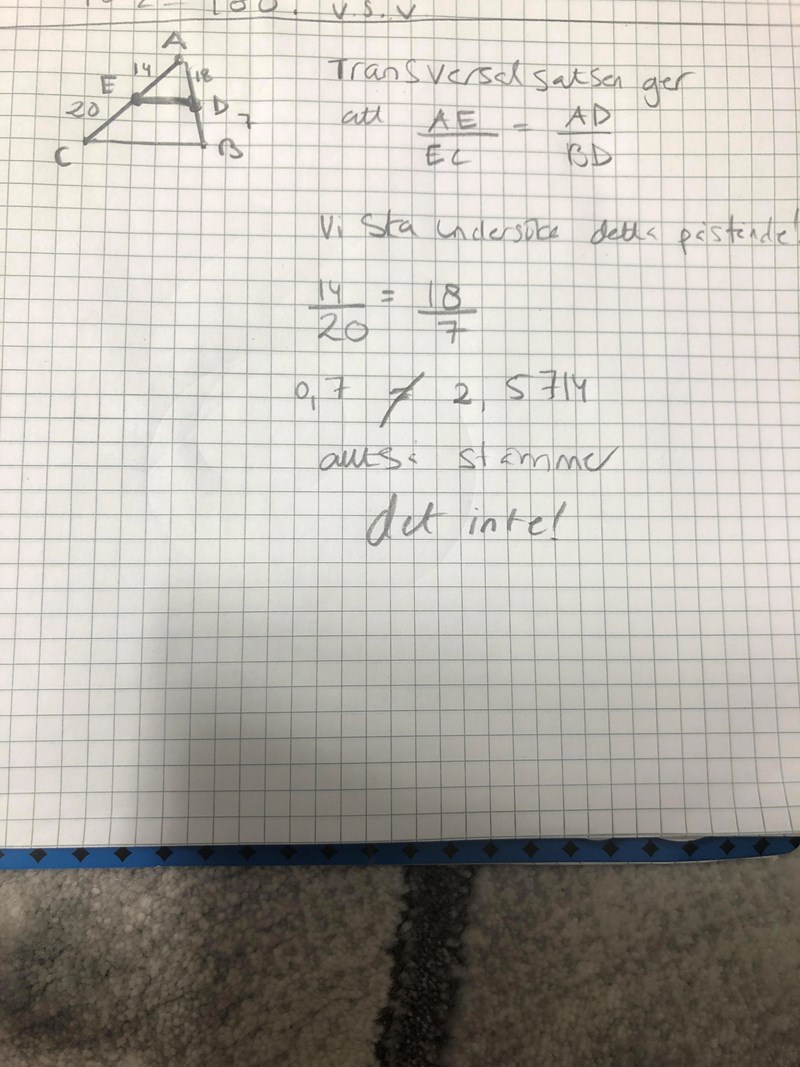 180. V.S.V
A
14
18
E
20
D
7
C
B
Transversalsatsen ger
att AE/EC = AD/BD
Vi ska undersöka detta påstående!
14/20 = 18/7
0,7 ≠ 2,5714
alltså stämmer
det inte!